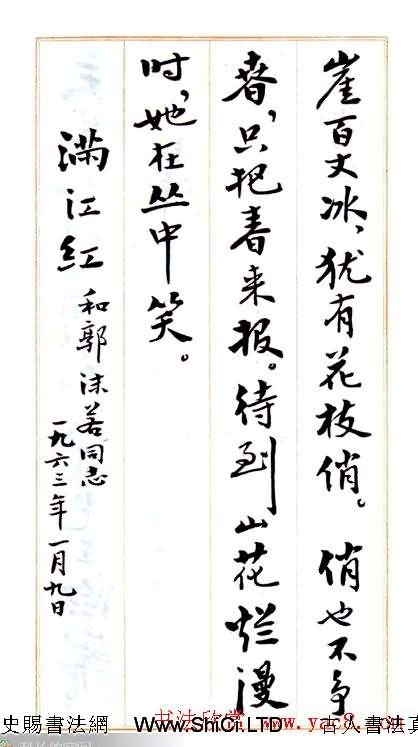 崖百丈冰，犹有花枝俏。俏也不争
春，只把春来报。待到山花烂漫
时，她在丛中笑。
满江红 和郭沫若同志
一九六三年一月九日
书法欣赏 www.yac8.com
史賜書法網 Www.ShiCi.LTD 古人書法真